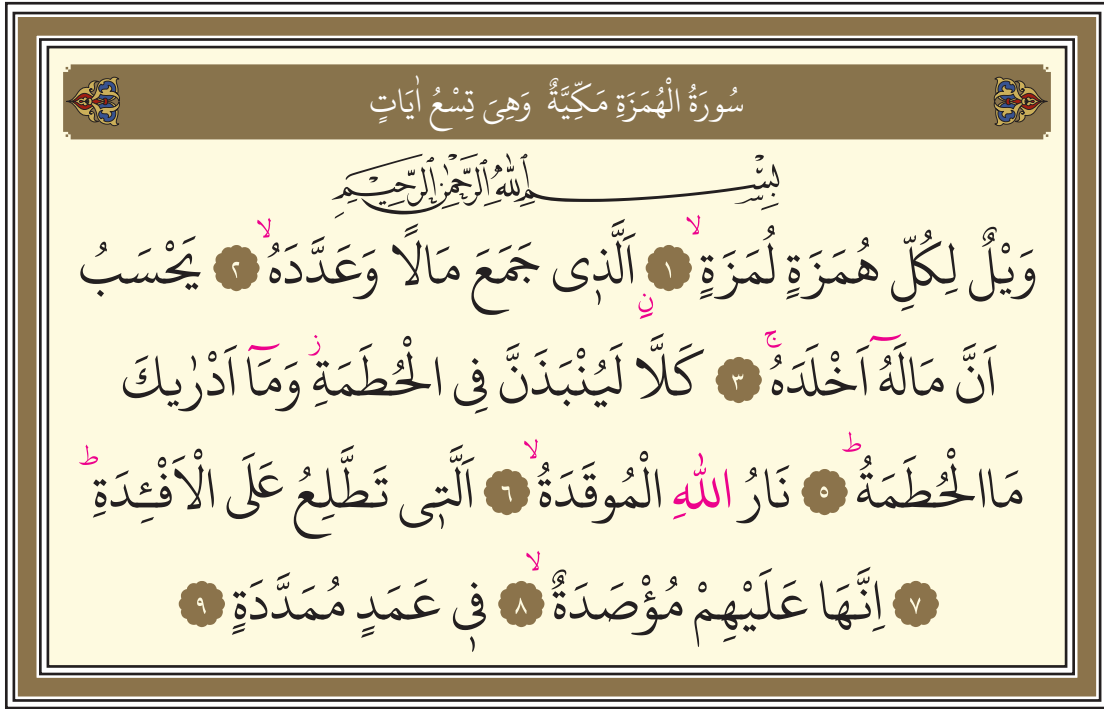 سُورَةُ الْهُمَزَةِ مَكِّيَّةٌ وَهِىَ تِسْعُ اٰيَاتٍ
بِسْمِ اللّٰهِ الرَّحْمٰنِ الرَّحِيمِ
وَيْلٌ لِكُلِّ هُمَزَةٍ لُمَزَةٍۙ ﴿١﴾ نِ اَلَّذٖى جَمَعَ مَالًا وَعَدَّدَهُۙ ﴿٢﴾ يَحْسَبُ
اَنَّ مَالَهُٓ اَخْلَدَهُۚ ﴿٣﴾ كَلَّا لَيُنْبَذَنَّ فِى الْحُطَمَةِؗ وَمَٓا اَدْرٰيكَ
مَاالْحُطَمَةُؕ ﴿٥﴾ نَارُ اللّٰهِ الْمُوقَدَةُۙ ﴿٦﴾ اَلَّتٖى تَطَّلِعُ عَلَى الْاَفْـِٔدَةِؕ
﴿٧﴾ اِنَّهَا عَلَيْهِمْ مُؤْصَدَةٌۙ ﴿٨﴾ فٖى عَمَدٍ مُمَدَّدَةٍ ﴿٩﴾